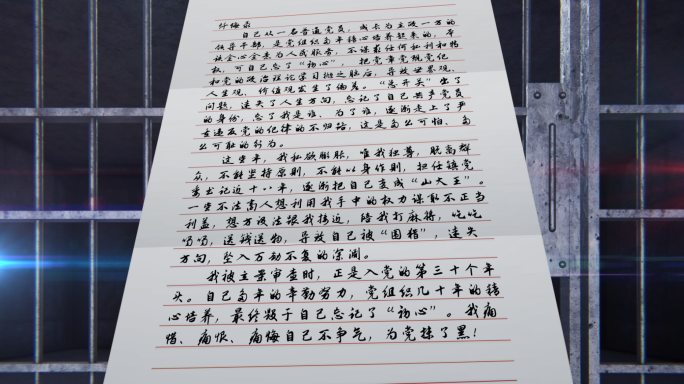 忏悔录
自己从一名普通党员，成长为主政一方的
领导干部，是党组织多年精心培养起来的，本
该全心全意为人民服务，不谋取任何私利和特
权，可自己忘了“初心”，把党章党规党纪
和党的政治理论学习抛之脑后，导致世界观、
人生观、价值观发生了偏差。“总开关”出了
问题，迷失了人生方向，忘记了自己共产党员
的身份，忘了我是谁、为了谁，逐渐走上了严
重违反党的纪律的不归路，这是多么可怕、多
么可耻的行为。
这些年，我私欲膨胀，唯我独尊，脱离群
众，不能坚持原则，不能以身作则，担任镇党
委书记近十八年，逐渐把自己变成“山大王”。
一些不法商人想利用我手中的权力谋取不正当
利益，想方设法跟我接近，陪我打麻将，吃吃
喝喝，送钱送物，导致自己被“围猎”，迷失
方向，坠入万劫不复的深渊。
我被立案审查时，正是入党的第三十个年
头。自己多年的辛勤努力，党组织几十年的精
心培养，最终毁于自己忘记了“初心”。我痛
惜、痛恨、痛悔自己不争气，为党抹了黑！